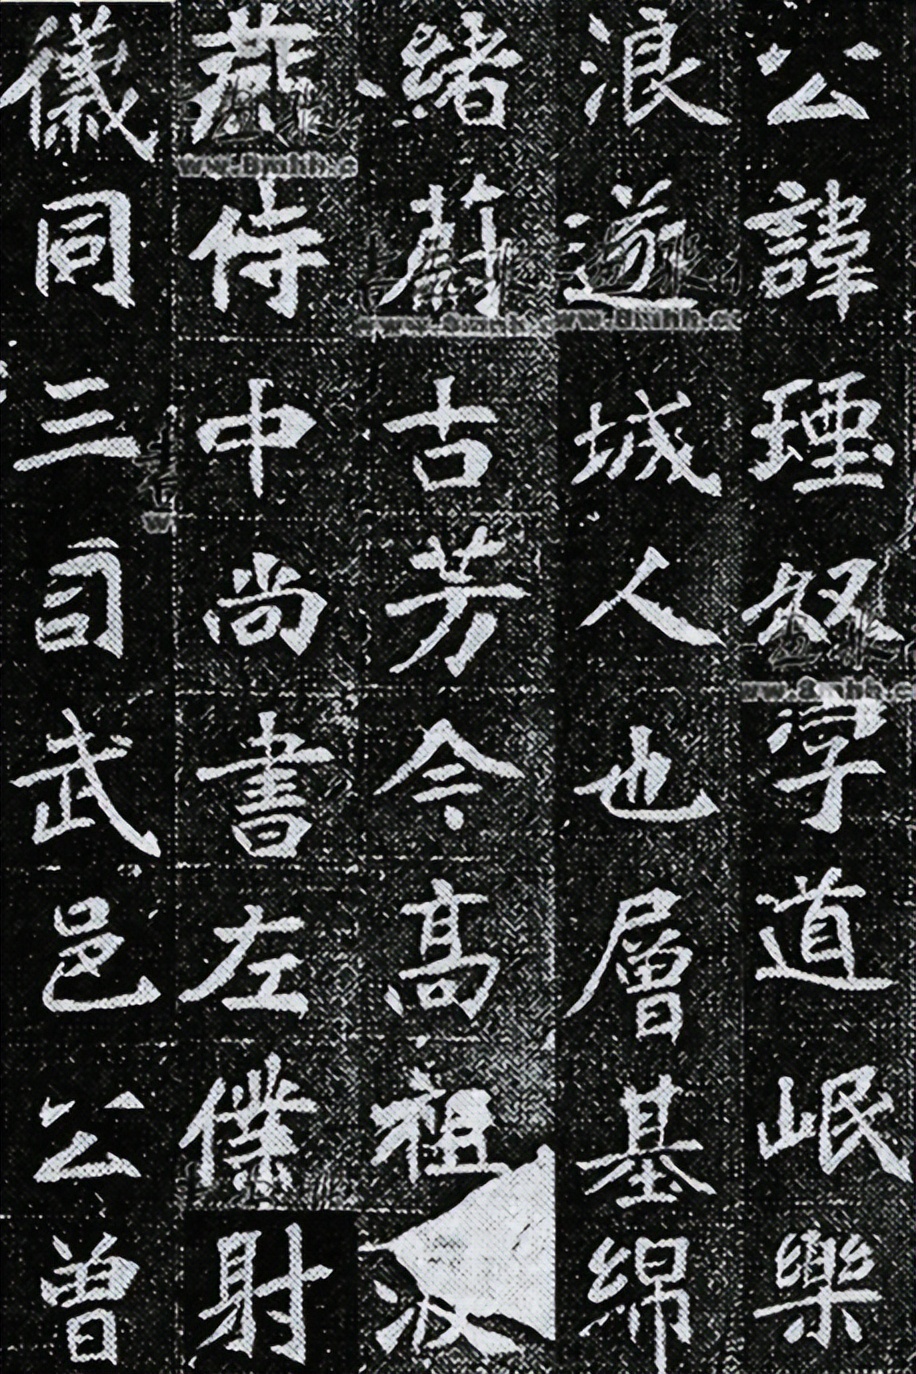 公諱理奴字道岷樂
浪遂城人也層基綿
緒蔚古芳今高祖波
燕侍中尚書左僕射
儀同三司武邑公曾